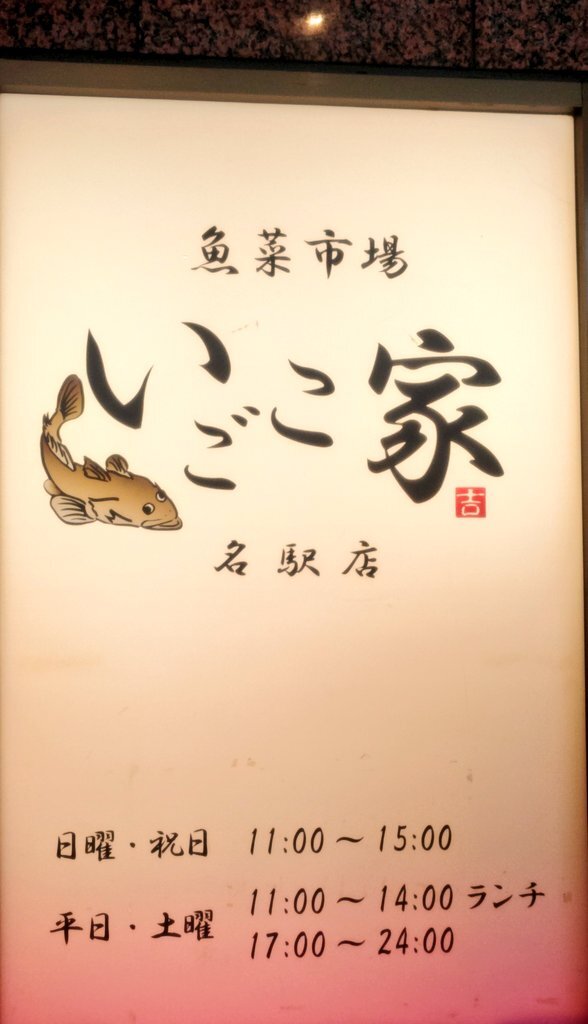 魚菜市場
いごこ家
吉
名駅店
日曜・祝日 11:00～15:00
平日・土曜 11:00～14:00 ランチ
17:00～24:00